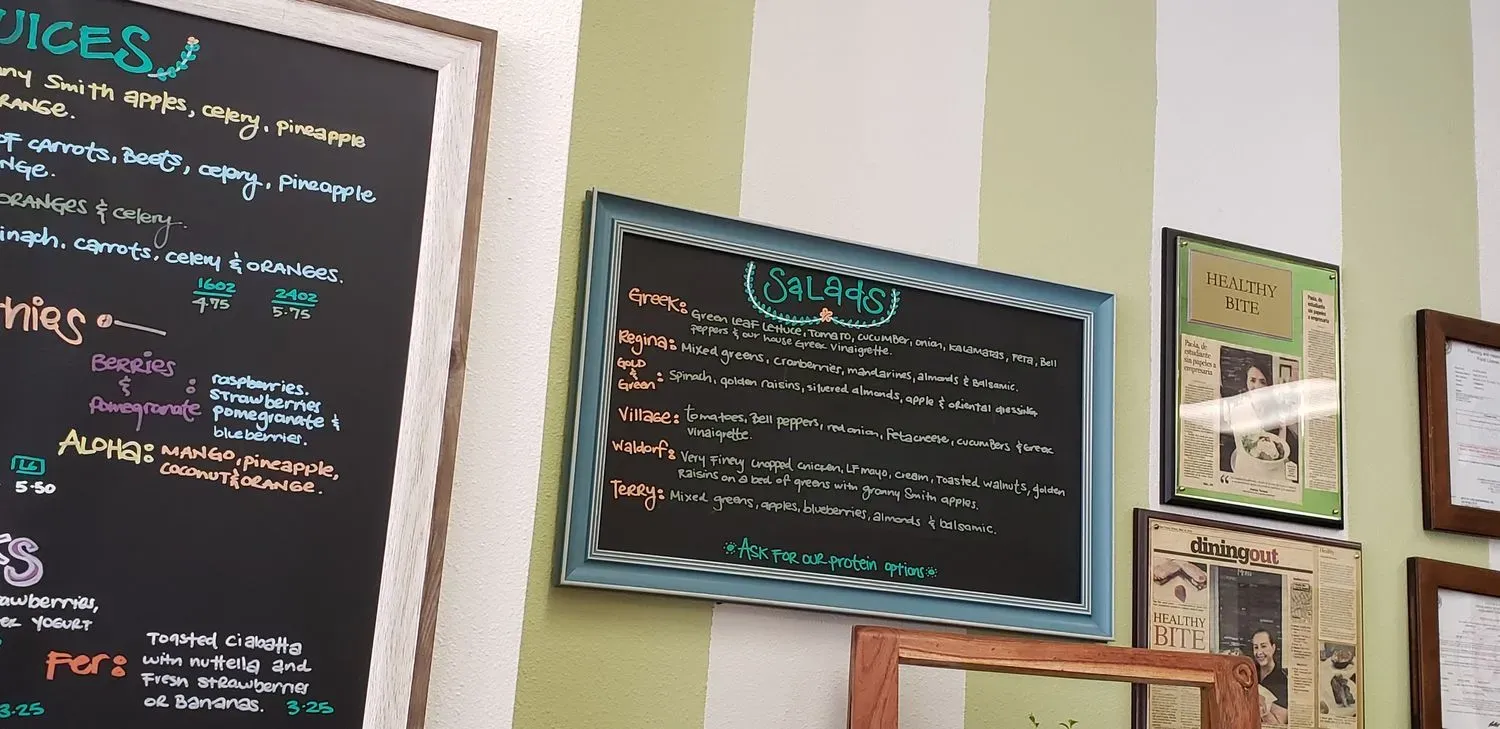 UICES
ny Smith apples, celery, pineapple
RANGE.
OF carrots, Beets, celery, pineapple
NGE.
ORANGES & celery.
inach, carrots, celery & ORANGES.
16oz 24oz
4.75 5.75
hies
Berries
&
Pomegranate
:
raspberries,
strawberries
pomegranate &
blueberries.
ALOHA: MANGO, pineapple,
coconut & ORANGE.
LG
5.50
KS
awberries,
YOGURT
Fer:
Toasted Ciabatta
with nuttella and
Fresh strawberries
or Bananas. 3.25
3.25
Salads
Greek: Green Leaf Lettuce, Tomato, cucumber, onion, kalamatas, Feta, Bell
peppers & our house Greek Vinaigrette.
Regina: Mixed greens, cranberries, mandarines, almonds & Balsamic.
Gold
&
Green: Spinach, golden raisins, slivered almonds, apple & oriental dressing.
Village: Tomatoes, Bell peppers, red onion, Feta cheese, cucumbers & Greek
Vinaigrette.
Waldorf: Very Finely chopped chicken, LF mayo, cream, toasted walnuts, golden
Raisins on a bed of greens with granny Smith apples.
Terry: Mixed greens, apples, blueberries, almonds & balsamic.
Ask for our protein options
HEALTHY
BITE
Paola, de
estudiante
sin papeles
a empresaria
Paola, de
estudiante
sin papeles a
empresaria
diningout
HEALTHY
BITE